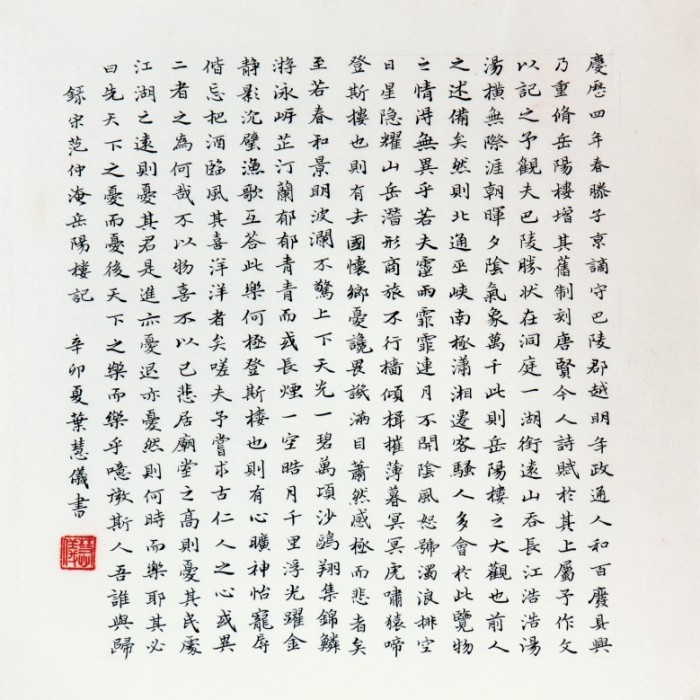 慶歷四年春滕子京謫守巴陵郡越明年政通人和百廢具興
乃重脩岳陽樓增其舊制刻唐賢今人詩賦於其上屬予作文
以記之予觀夫巴陵勝狀在洞庭一湖銜遠山吞長江浩浩湯
湯橫無際涯朝暉夕陰氣象萬千此則岳陽樓之大觀也前人
之述備矣然則北通巫峽南極瀟湘遷客騷人多會於此覽物
之情得無異乎若夫霪雨霏霏連月不開陰風怒號濁浪排空
日星隱耀山岳潛形商旅不行檣傾楫摧薄暮冥冥虎嘯猿啼
登斯樓也則有去國懷鄉憂讒畏譏滿目蕭然感極而悲者矣
至若春和景明波瀾不驚上下天光一碧萬頃沙鷗翔集錦鱗
游泳岸芷汀蘭郁郁青青而或長煙一空皓月千里浮光躍金
静影沉璧漁歌互答此樂何極登斯樓也則有心曠神怡寵辱
偕忘把酒臨風其喜洋洋者矣嗟夫予嘗求古仁人之心或異
二者之為何哉不以物喜不以己悲居廟堂之高則憂其民處
江湖之遠則憂其君是進亦憂退亦憂然則何時而樂耶其必
曰先天下之憂而憂後天下之樂而樂乎噫微斯人吾誰與歸
錄宋范仲淹岳陽樓記 辛卯夏葉慧儀書